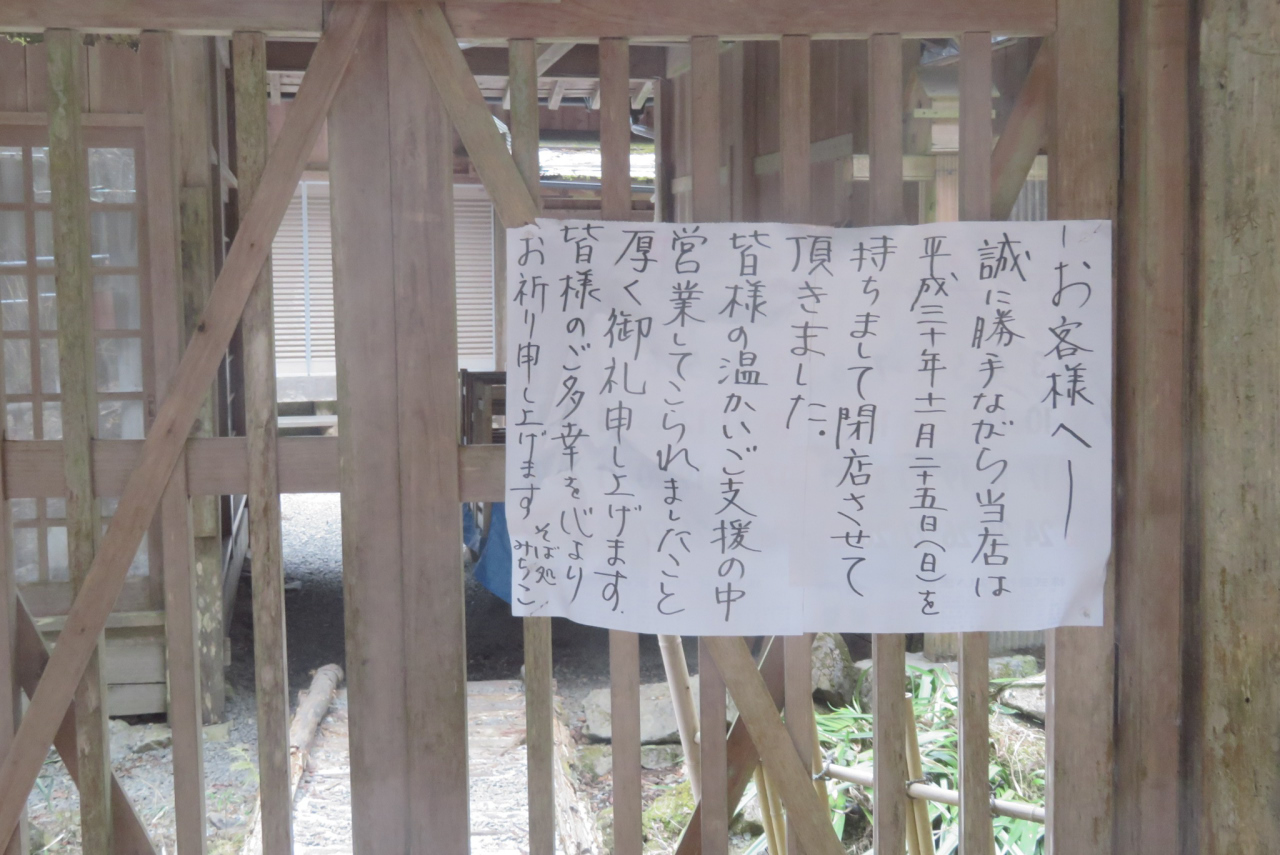 ーお客様へー
誠に勝手ながら当店は
平成三十年十一月二十五日(日)を
持ちまして閉店させて
頂きました.
皆様の温かいご支援の中
営業してこられましたこと
厚く御礼申し上げます.
皆様のご多幸を心より
お祈り申し上げます
そば処
みちこ